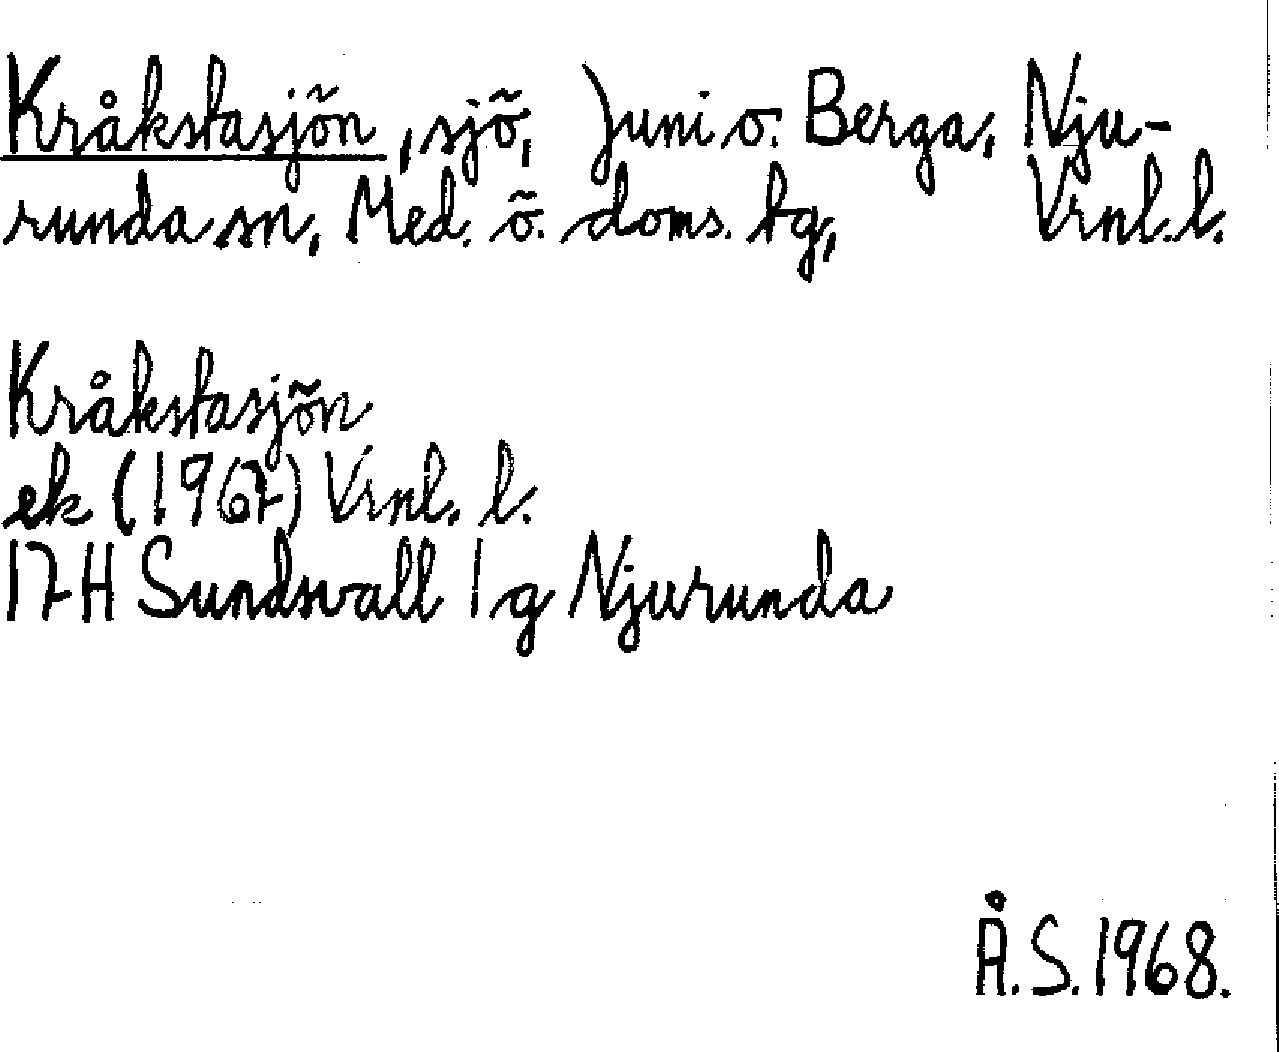 Kråkstasjön, sjö, Juni o. Berga, Nju-
runda sn, Med. ö. doms. tg, Vrnl. l.
Kråkstasjön
ek (1967) Vrnl. l.
17H Sundsvall 1 g Njurunda
Å.S. 1968.